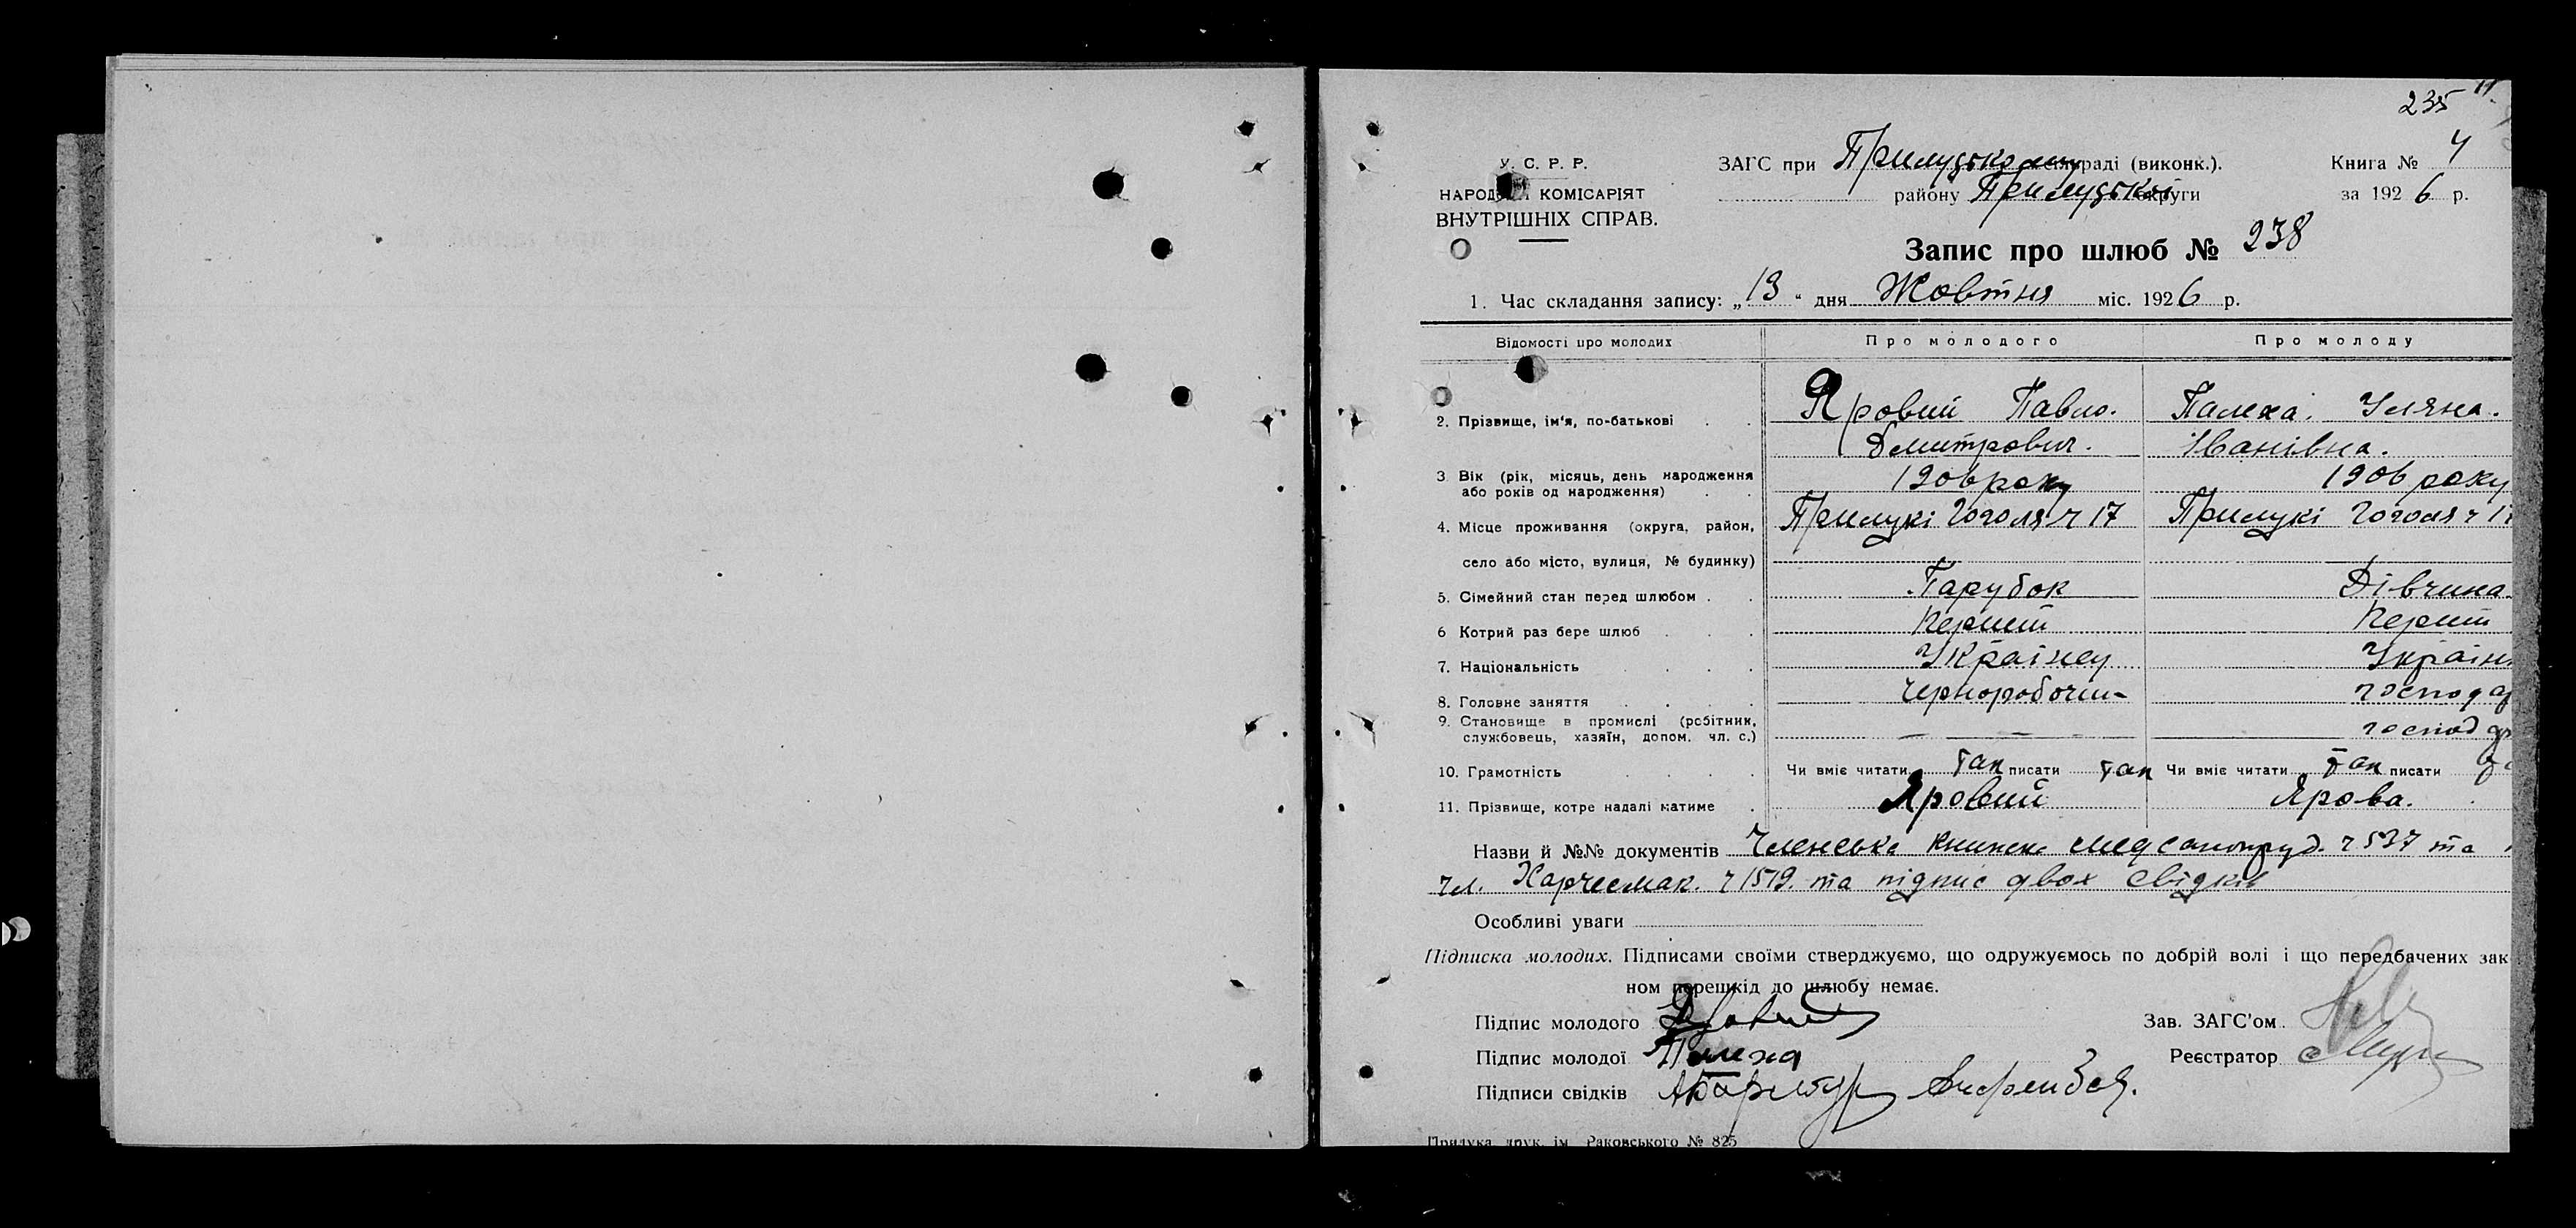 235
У. С. Р. Р.
НАРОДНИЙ КОМІСАРІЯТ
ВНУТРІШНІХ СПРАВ.
ЗАГС при Прилуцькому раді (виконк.).
району Прилуцької округи
Книга № 4
за 1926 р.
Запис про шлюб № 238
1. Час складання запису: „13“ дня Жовтня міс. 1926 р.
Відомості про молодих Про молодого Про молоду
2. Прізвище, ім'я, по-батькові Яровий Павло. Палеха. Уляна.
Дмитрович. Іванівна.
3 Вік (рік, місяць, день народження 1906 року 1906 року
або років од народження)
4. Місце проживання (округа, район, Прилукі Гоголя ч 17 Прилукі Гоголя ч 17
село або місто, вулиця, № будинку)
5. Сімейний стан перед шлюбом Парубок Дівчина.
6 Котрий раз бере шлюб Перший Перший
7. Національність Українец Україн
8. Головне заняття Черноробочий господ
9. Становище в промислі (робітник, — — — господ
службовець, хазяїн, допом. чл. с.)
10. Грамотність Чи вміє читати так писати так Чи вміє читати так писати
11. Прізвище, котре надалі матиме Яровий Ярова.
Назви й №№ документів Членська книжка медсанпруд. ч 537 та
чл. Харчесмак. ч 1519. та підпис двох свідків
Особливі уваги
Підписка молодих. Підписами своїми стверджуємо, що одружуємось по добрій волі і що передбачених зак
ном перешкід до шлюбу немає.
Підпис молодого Яровий
Зав. ЗАГС'ом
Підпис молодої Палеха
Реєстратор
Підписи свідків
Прилука друк. ім Раковського № 825